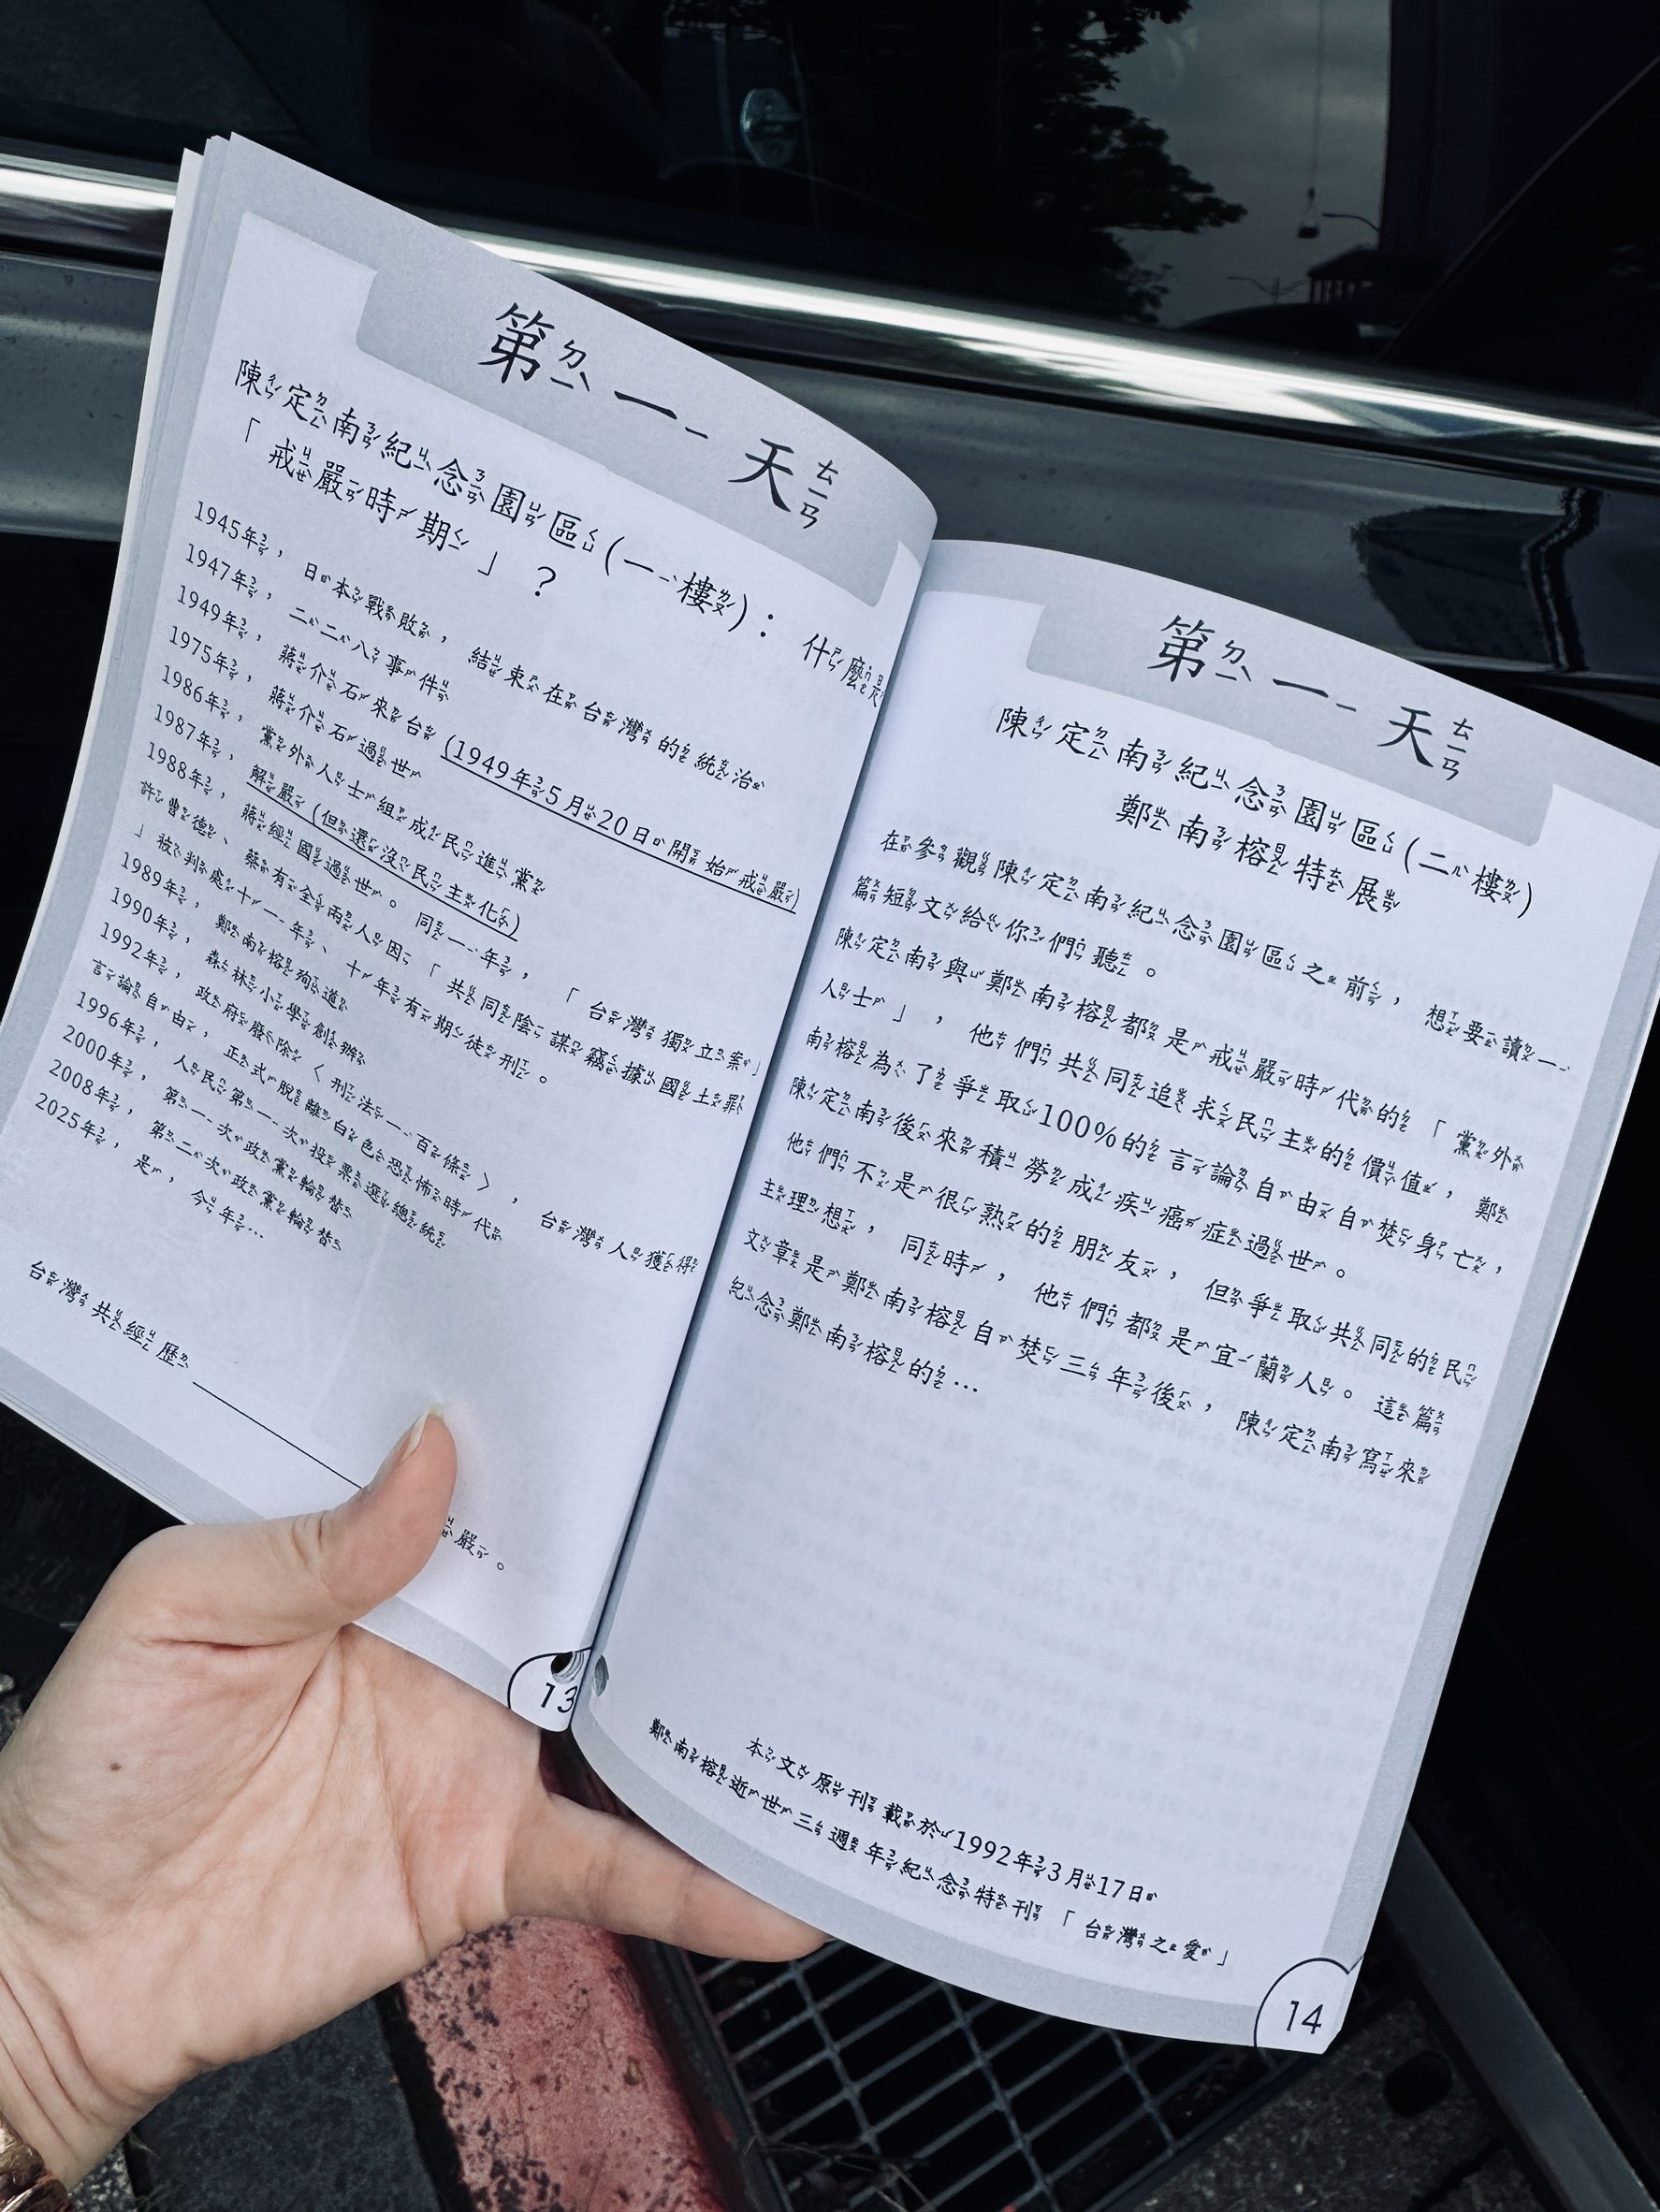 第一天
陳定南紀念園區(一樓)：什麼是
「戒嚴時期」?
1945年，日本戰敗，結束在台灣的統治
1947年，二二八事件
1949年，蔣介石來台(1949年5月20日開始戒嚴)
1975年，蔣介石過世
1986年，黨外人士組成民進黨
1987年，解嚴(但還沒民主化)
1988年，蔣經國過世。同一年，「台灣獨立案」
許曹德、蔡有全兩人因「共同陰謀竊據國土罪
」被判處十一年、十年有期徒刑。
1989年，鄭南榕殉道
1990年，森林小學創辦
1992年，政府廢除〈刑法一百條〉，台灣人獲得
言論自由，正式脫離白色恐怖時代
1996年，人民第一次投票選總統
2000年，第一次政黨輪替
2008年，第二次政黨輪替
2025年，是，今年…
台灣共經歷 嚴。
13
第一天
陳定南紀念園區(二樓)
鄭南榕特展
在參觀陳定南紀念園區之前，想要讀一
篇短文給你們聽。
陳定南與鄭南榕都是戒嚴時代的「黨外
人士」，他們共同追求民主的價值，鄭
南榕為了爭取100%的言論自由自焚身亡，
陳定南後來積勞成疾癌症過世。
他們不是很熟的朋友，但爭取共同的民
主理想，同時，他們都是宜蘭人。這篇
文章是鄭南榕自焚三年後，陳定南寫來
紀念鄭南榕的…
本文原刊載於1992年3月17日
鄭南榕逝世三週年紀念特刊「台灣之愛」
14